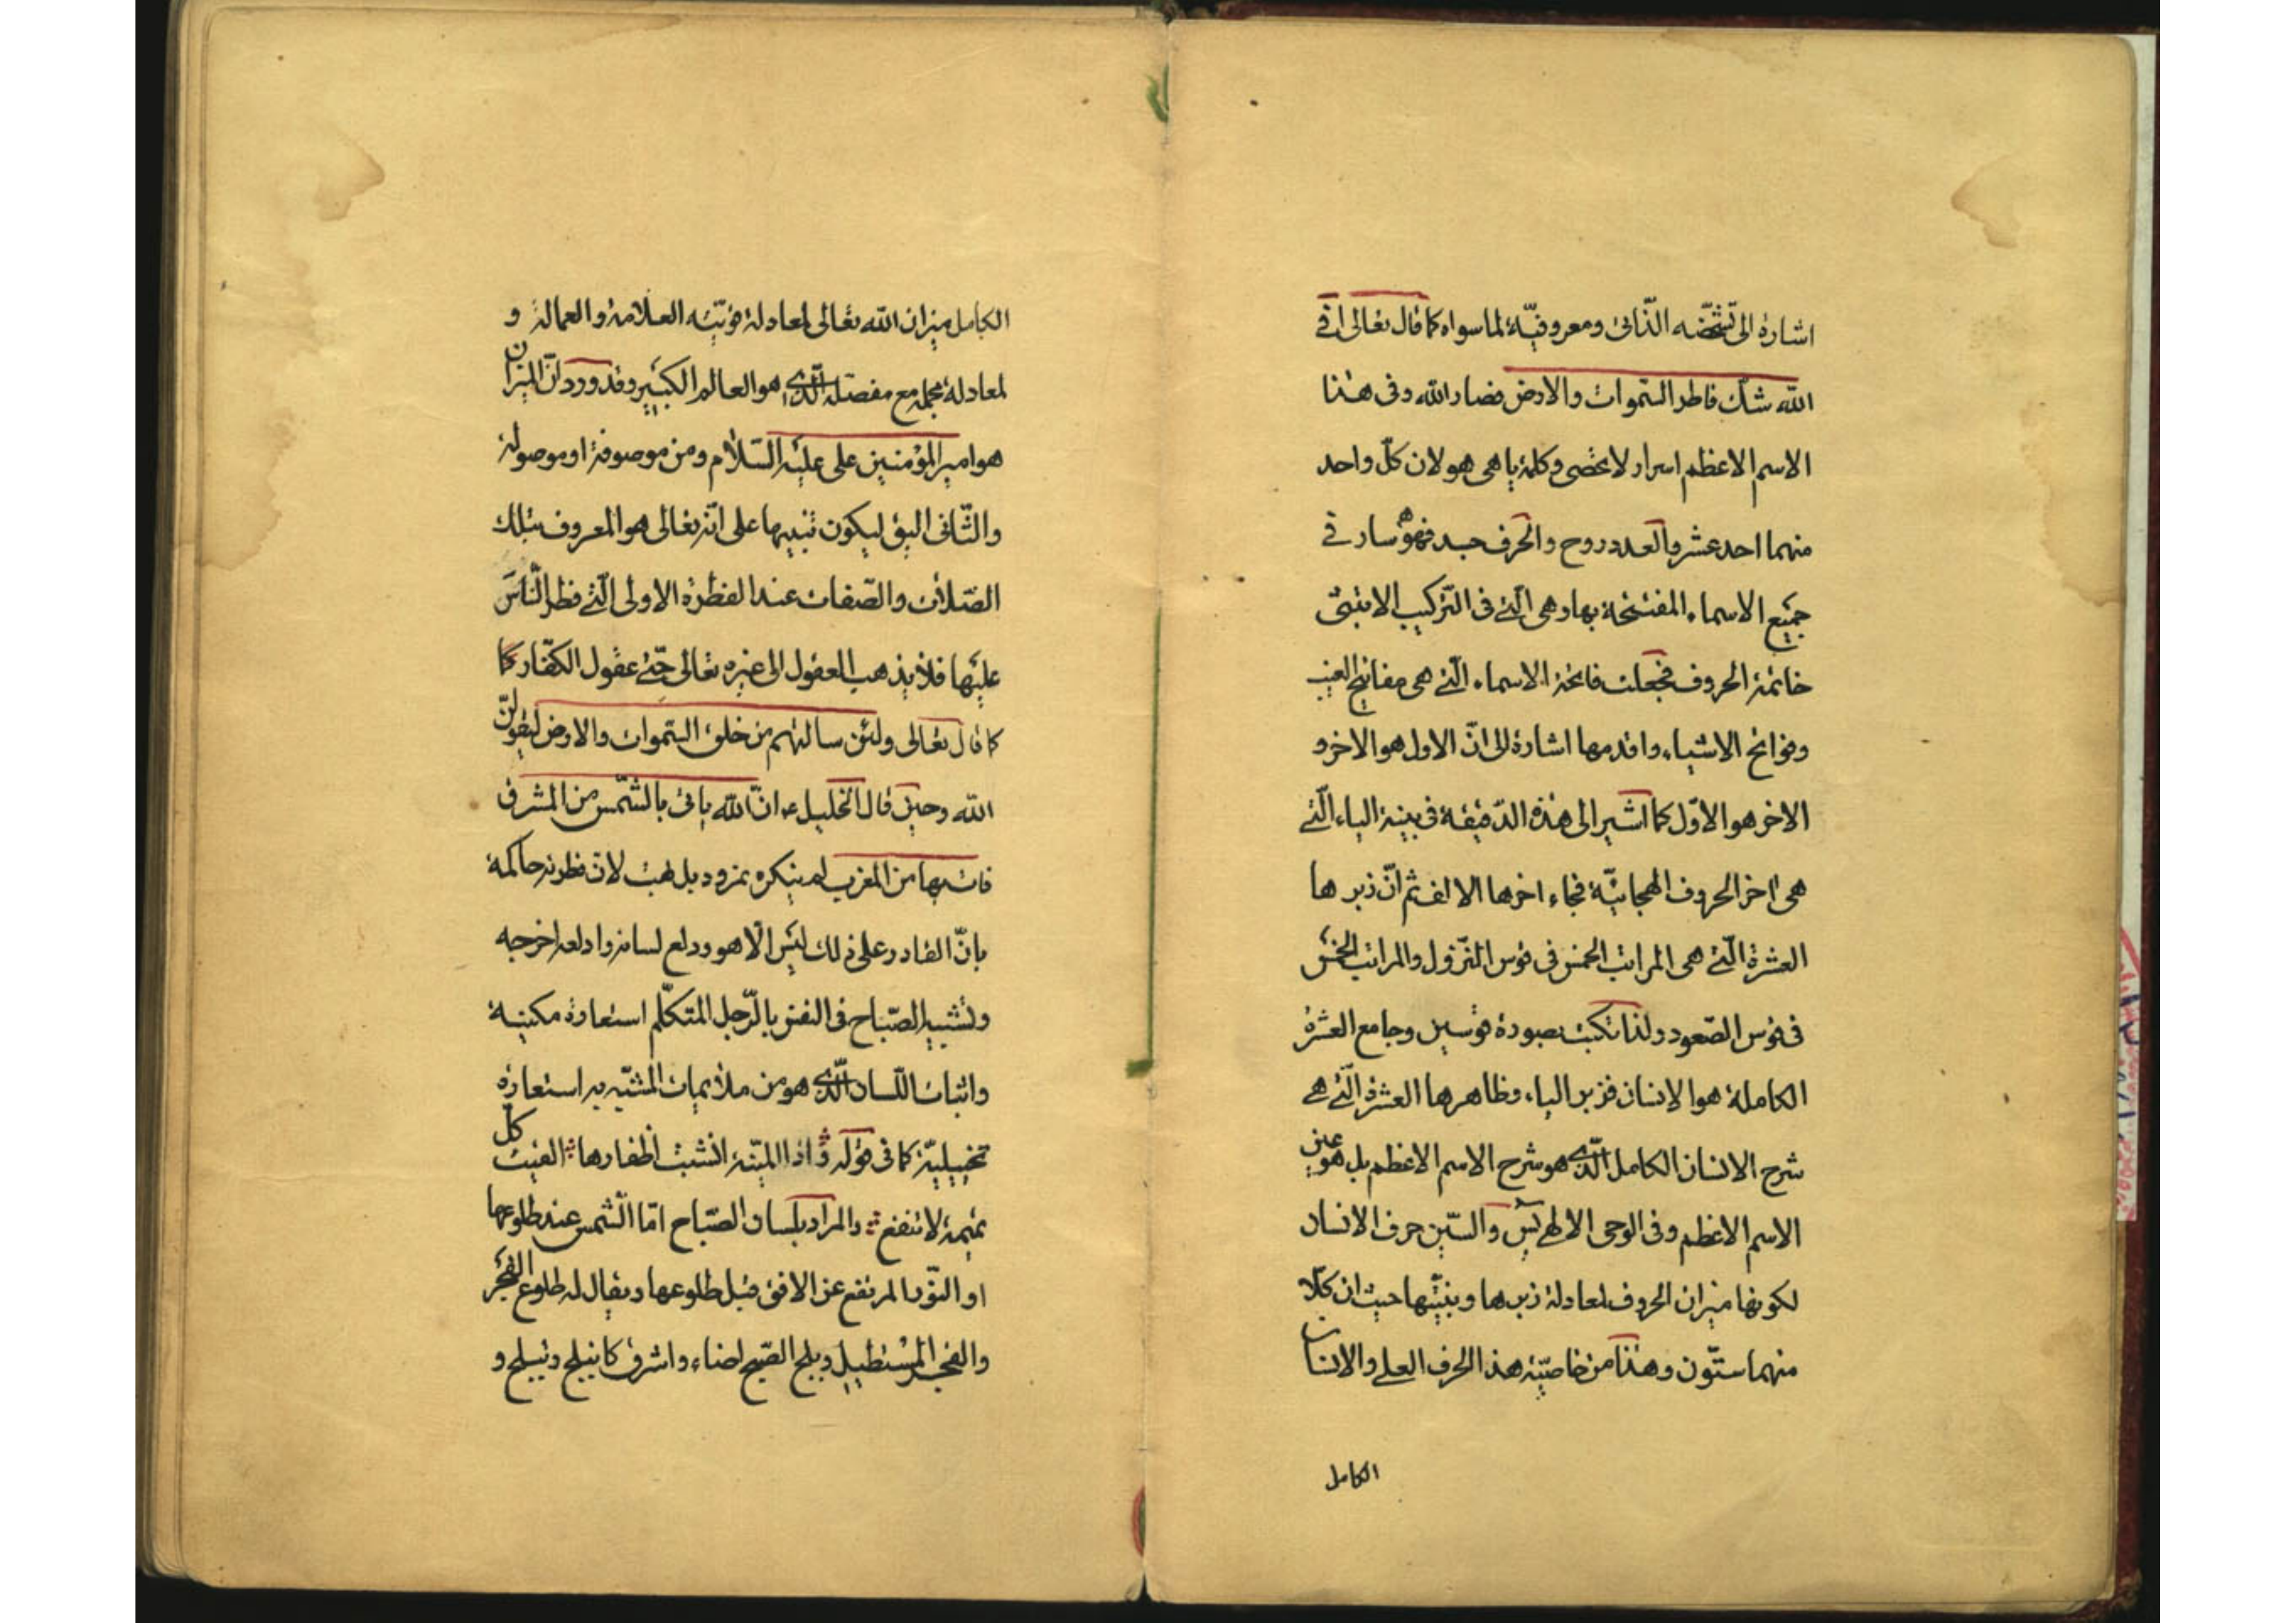 اشارة الى تشخّصه الذّاتى ومعروفيّة لما سواه كما قال تعالى افى
الله شكّ فاطر السّموات والارض فصار الله وفى هذا
الاسم الاعظم اسرار لا تحصى وكلمة يا هى هو لان كلّ واحد
منهما احد عشر والعدد روح والحرف جسد فهو سار فى
جميع الاسماء المفتتحة بها وهى الّتى فى التّركيب الابتثى
خاتمة الحروف فجعلت فاتحة الاسماء الّتى هى مفاتيح الغيب
وفواتح الاشياء واقدمها اشارة الى انّ الاول هو الاخر و
الاخر هو الاوّل كما اشير الى هذه الدّقيقة فى بينة الياء الّتى
هى اخر الحروف الهجائيّة فجاء اخرها الالف ثم انّ زبرها
العشرة الّتى هى المراتب الخمس فى قوس النّزول والمراتب الخمس
فى قوس الصّعود ولذا تكتب بصورة قوسين وجامع العشرة
الكاملة هو الانسان فزبر الياء وظاهرها العشرة الّتى هى
شرح الانسان الكامل الّذى هو شرح الاسم الاعظم بل هو عين
الاسم الاعظم وفى الوحى الالهى يس والسّين حرف الانسان
لكونها ميزان الحروف لمعادلة زبرها وبيّنتها حيث ان كلّا
منهما ستّون وهذا من خاصيّة هذا الحرف العلى والانسان
الكامل
الكامل ميزان الله تعالى لمعادلة قوّتيه العلامة والعمالة و
لمعادلة مجمله مع مفصّله الّذى هو العالم الكبير وقد ورد انّ الميزان
هو امير المؤمنين على عليه السّلام ومن موصوفة او موصولة
والثّانى اليق ليكون تنبيها على انّه تعالى هو المعروف بتلك
الصّلات والصّفات عند الفطرة الاولى الّتى فطر النّاس
عليها فلا يذهب العقول الى غيره تعالى حتّى عقول الكفّار كما
كما قال تعالى ولئن سالتهم من خلق السّموات والارض ليقولنّ
الله وحين قال الخليل ع انّ الله ياتى بالشّمس من المشرق
فات بها من المغرب لم ينكره نمرود بل بهت لان فطرته حاكمة
بانّ القادر على ذلك ليس الّا هو ودلع لسانه وادلعه اخرجه
وتشبيه الصّباح فى النفس بالرّجل المتكلّم استعارة مكنيـة
واثبات اللّسان الّذى هو من ملائمات المشبّه به استعارة
تخييليّة كما فى قوله واذا المنيّة انشبت اظفارها الفيت كلّ
تميمة لا تنفع والمراد بلسان الصّباح امّا الشّمس عند طلوعها
او النّور المرتفع عن الافق قبل طلوعها ويقال له طلوع الفجر
والفجر المستطيل وبلج الصّبح اضاء واشرق كانبلج وتبلج و